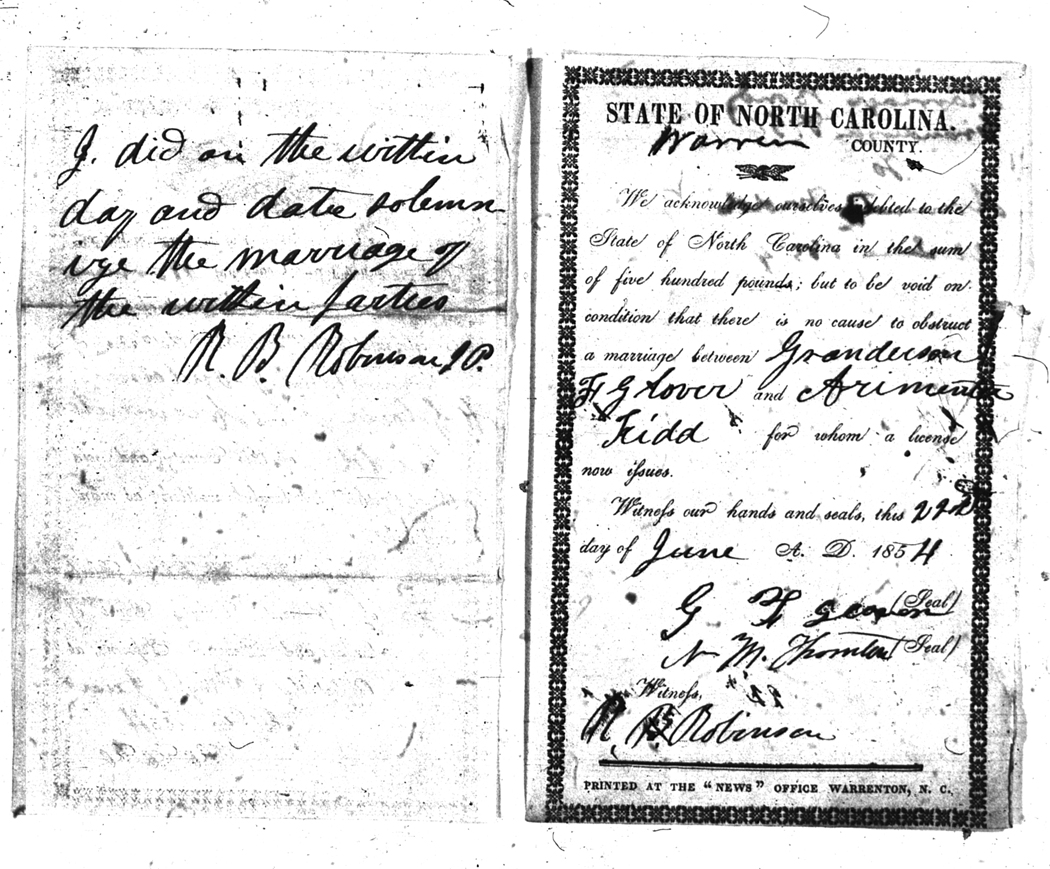 I. did on the within
day and date solemn
ize the marriage of
the within parties
R. B. Robinson J.P.
STATE OF NORTH CAROLINA.
Warren COUNTY.
We acknowledge ourselves indebted to the
State of North Carolina in the sum
of five hundred pounds; but to be void on
condition that there is no cause to obstruct
a marriage between Granderson
F Glover and Arimenta
Kidd for whom a license
now issues.
Witness our hands and seals, this 22d
day of June A. D. 1854
G F Glover (Seal)
N M. Thornton (Seal)
Witness,
R B Robinson
PRINTED AT THE “NEWS” OFFICE WARRENTON, N. C.